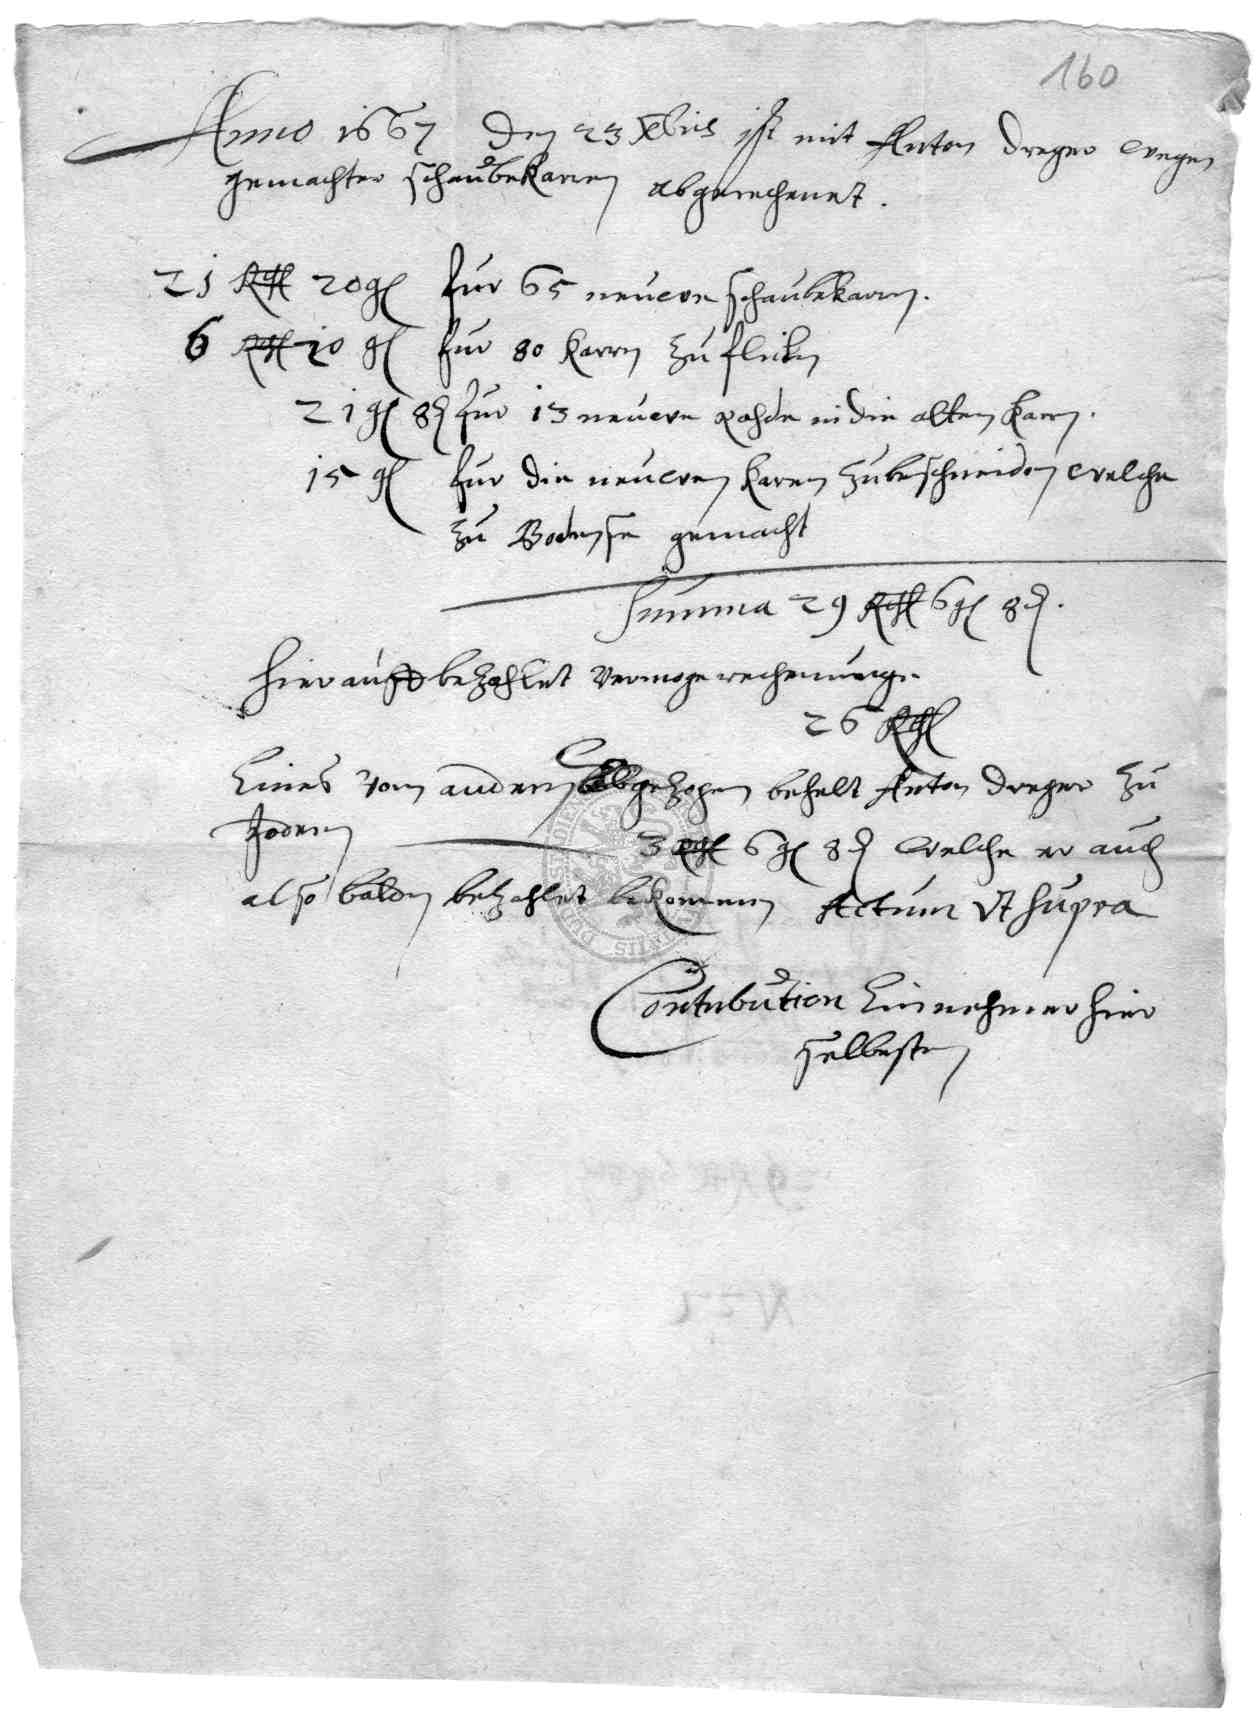 160
Anno 1667 den 23 Xbris ist mit Anton dreger wegen
gemachter schaubekarren abgerechnet.
21 Rthl 20 gl fur 65 neuwe schaubekarren.
6 Rthl 20 gl fur 80 karrn zu flicken
21 gl 8 ₰ fur 13 neuwe rahde in die alten karrn.
15 gl fur die neuwen karen zubeschneiden welche
zu gemacht
Summa 29 Rthl 6 gl 8 ₰.
hierauff bezahlet vermoge rechenunge
26 Rthl
Eines vom andern abgezogen behelt Anton dreger zu
fodern 3 Rthl 6 gl 8 ₰ welche er auch
also balden bezahlet bekommen Actum Vt supra
Contribution Einnehmer hier
selbesten